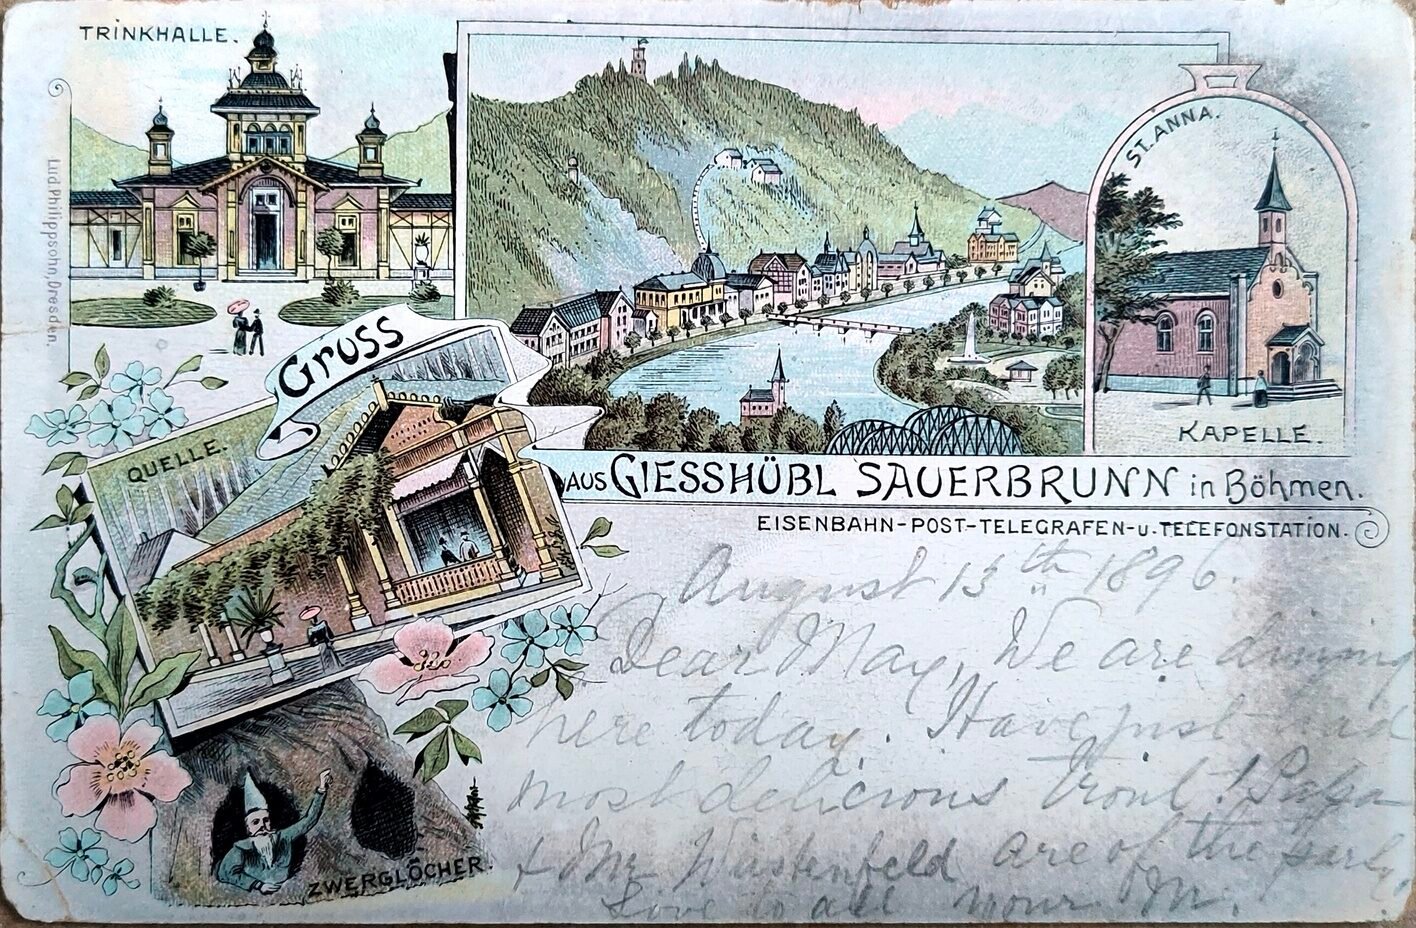 TRINKHALLE.
ST. ANNA.
KAPELLE.
Lud. Philippsohn, Dresden.
Gruss
QUELLE.
AUS GIESSHÜBL SAUERBRUNN in Böhmen.
EISENBAHN-POST-TELEGRAFEN-u. TELEFONSTATION.
ZWERGLÖCHER.
August 13th 1896.
Dear May, We are dining
here today. Have just had
most delicious trout! Papa
& Mr Wüstenfeld are of the party.
Love to all Your M.